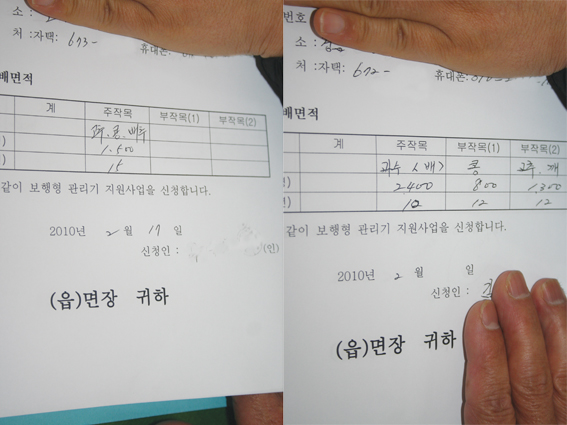 소 :
처 :자택: 673-
휴대폰:
배면적
계 주작목 부작목(1) 부작목(2)
콩. 배추
1.500
15
같이 보행형 관리기 지원사업을 신청합니다.
2010년 2 월 17 일
신청인 : (인)
(읍)면장 귀하
번호
소 :
처 :자택: 672-
휴대폰:
배면적
계 주작목 부작목(1) 부작목(2)
과수 (배) 콩 고추. 깨
2400 800 1,300
10 12 12
같이 보행형 관리기 지원사업을 신청합니다.
2010년 2 월 일
신청인 : 김
(읍)면장 귀하